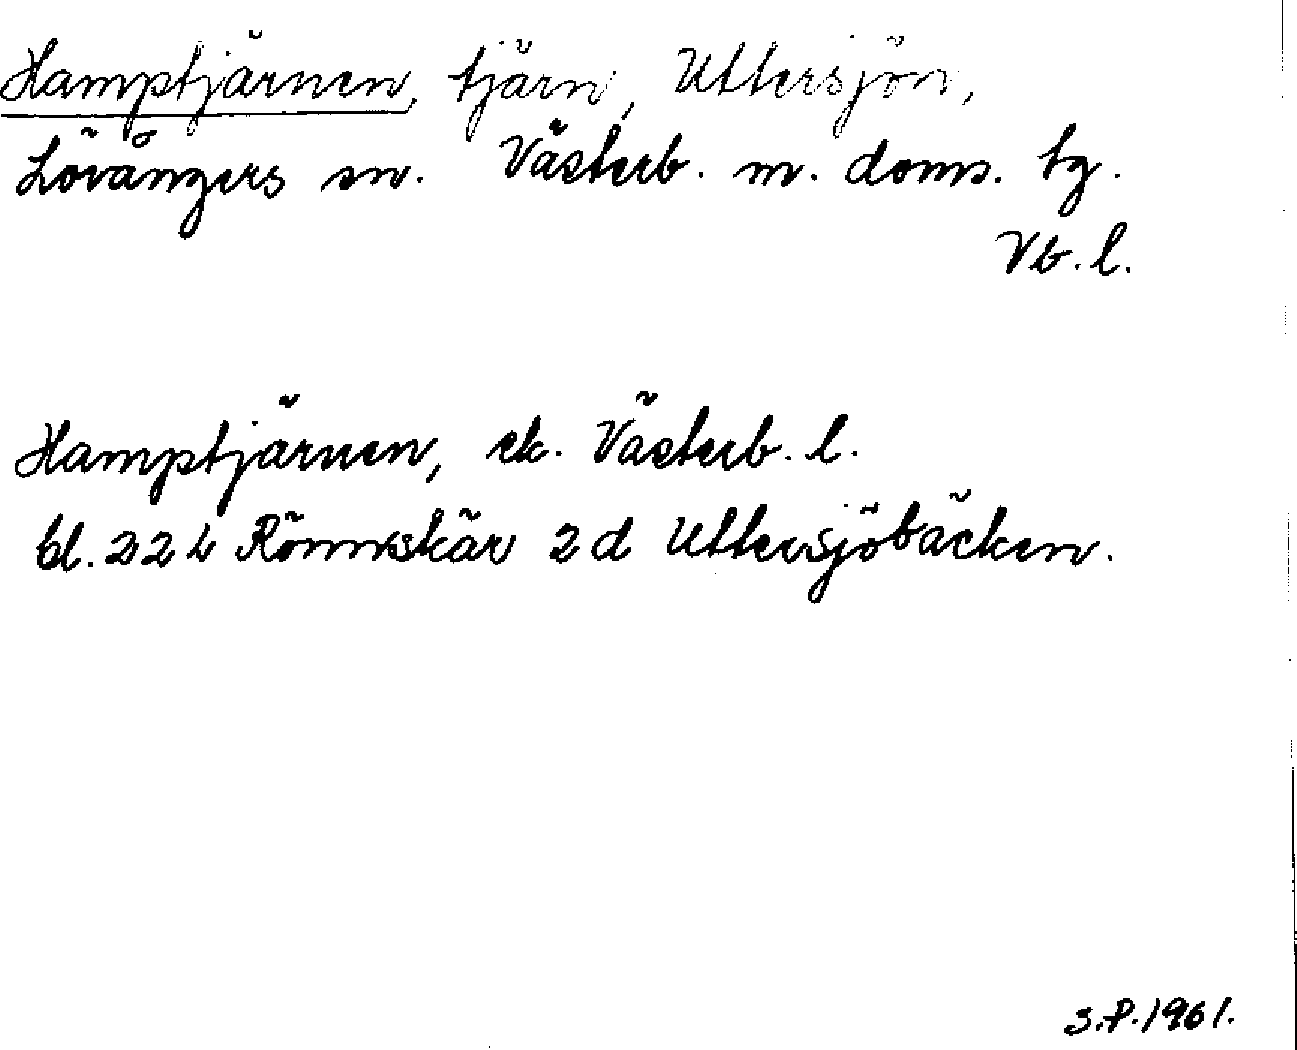 Hamptjärnen, tjärn, Uttersjön,
Lövångers sn. Västerb. m. doms. tg.
Vb. l.
Hamptjärnen, ek. Västerb. l.
bl. 22 L Rönnskär 2d Uttersjöbäcken.
S.P. 1961.